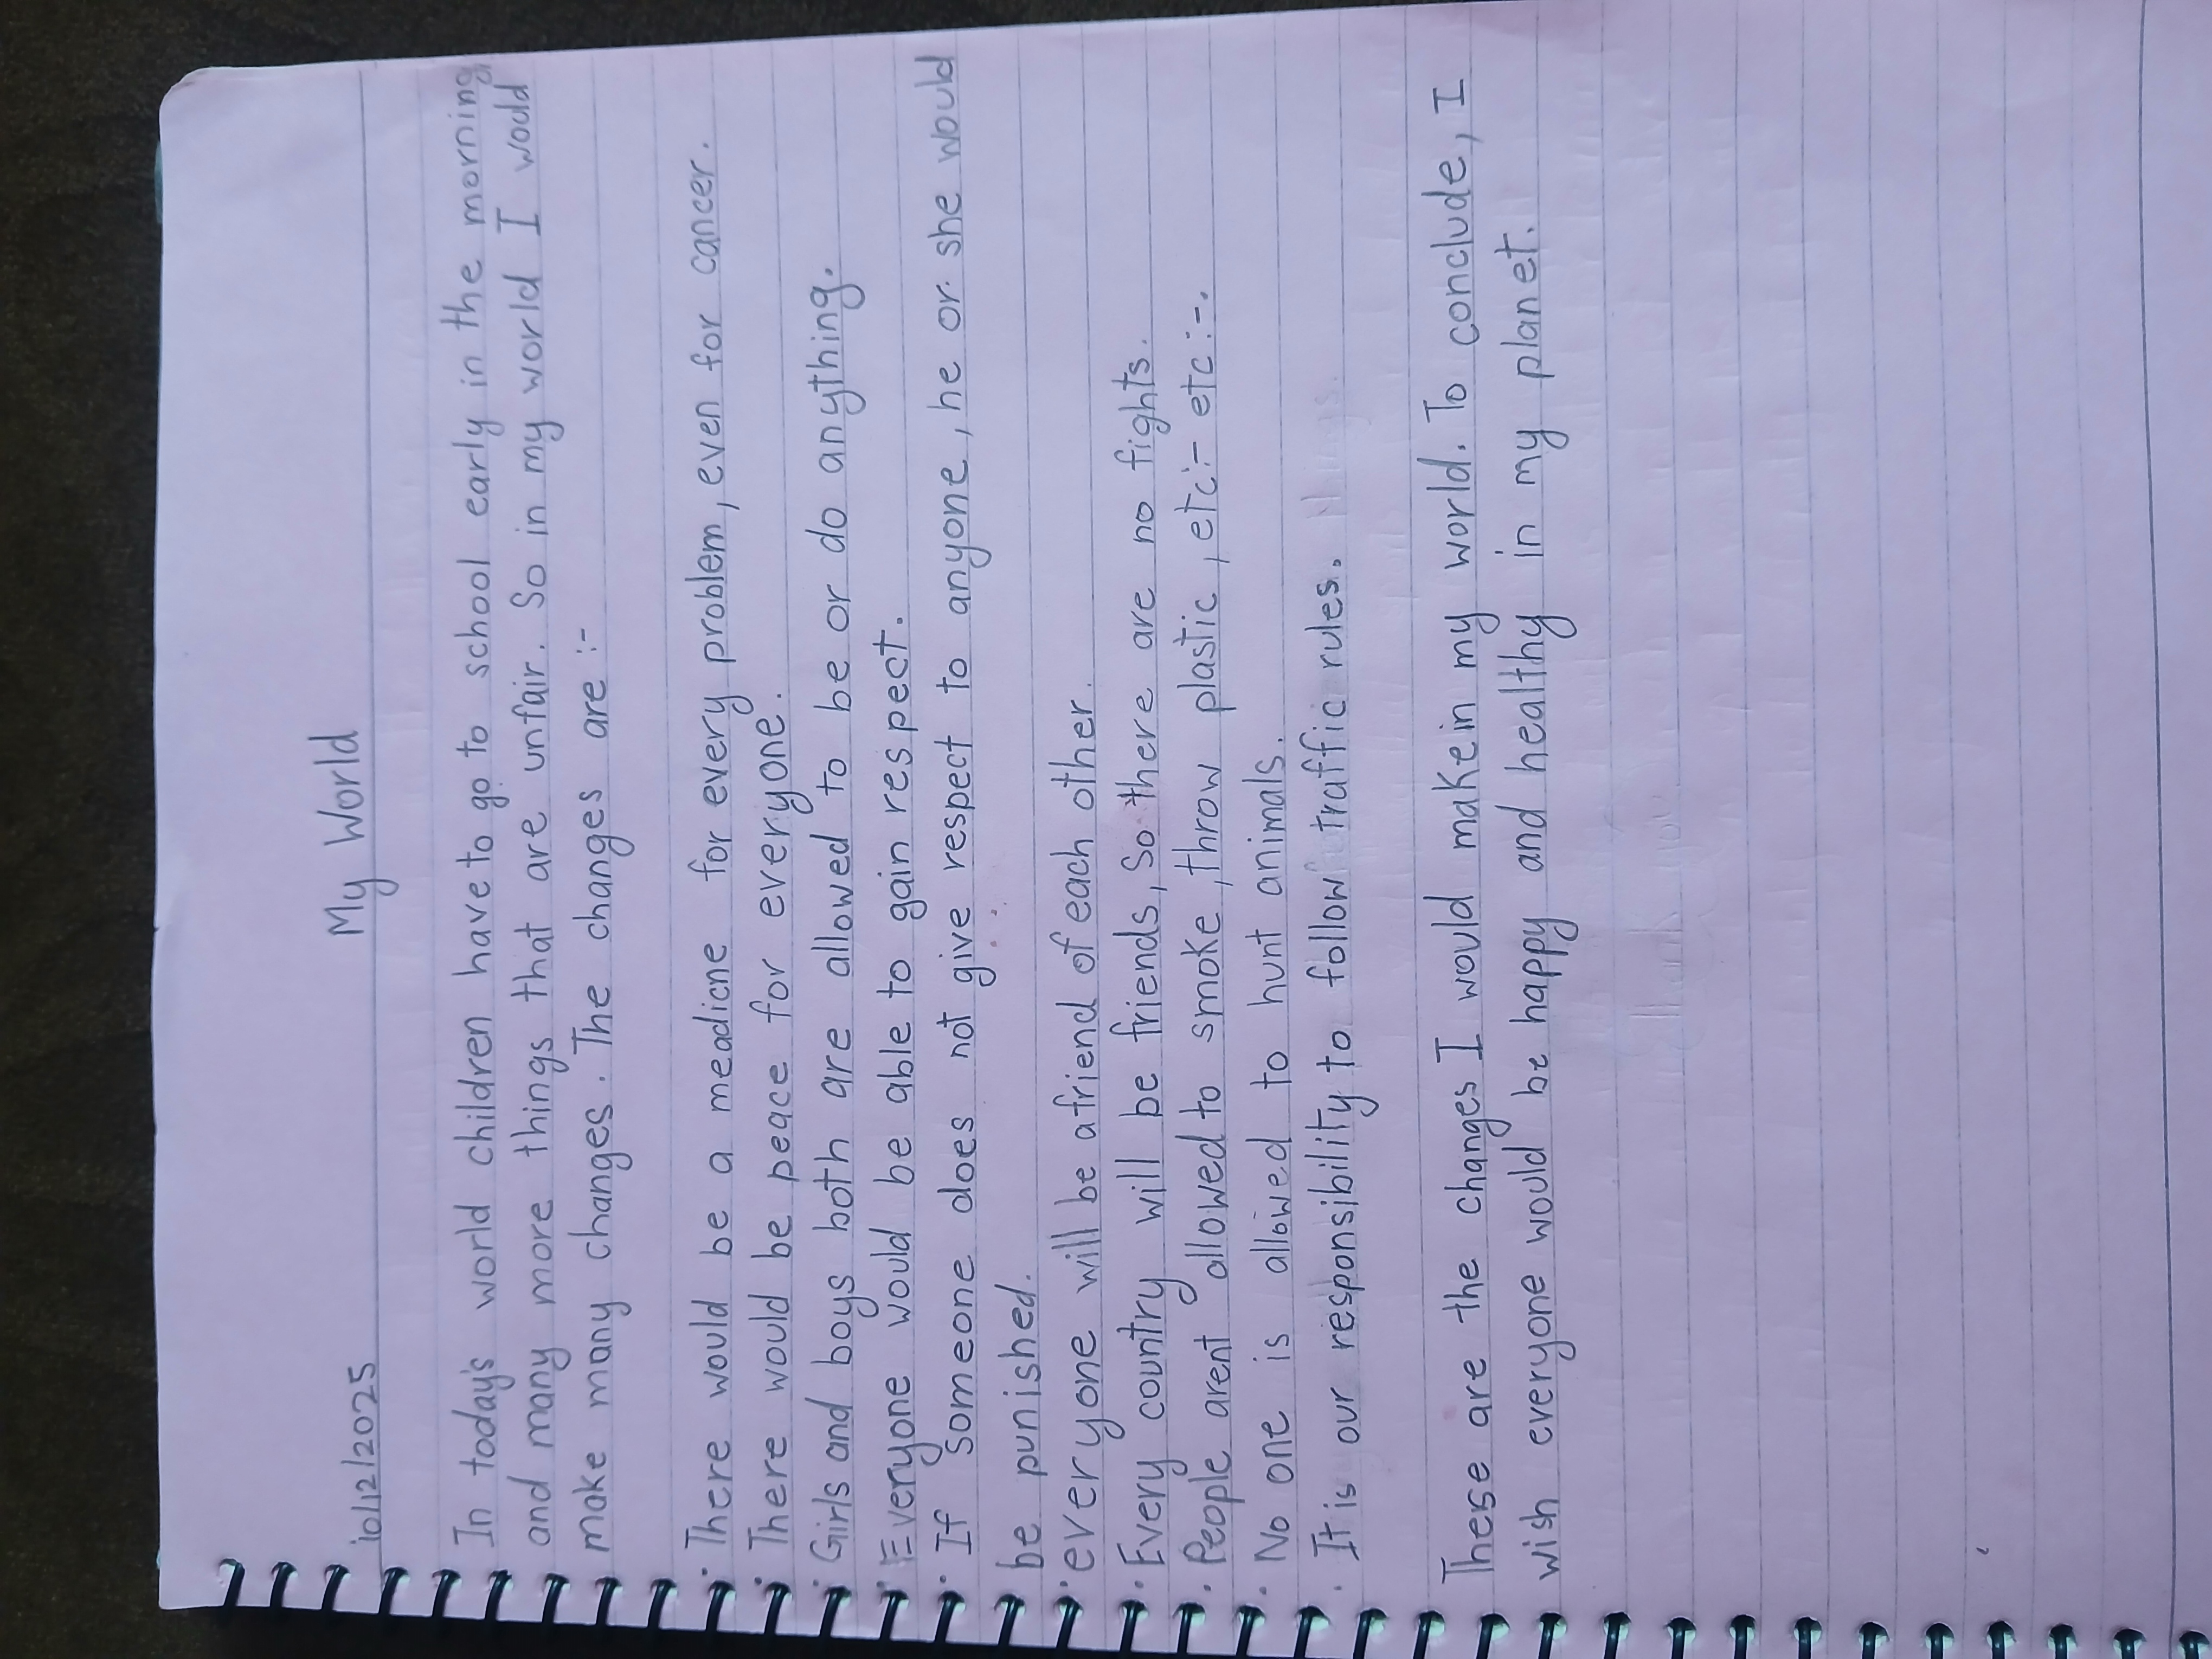 10/12/2025
My World
In today's world children have to go to school early in the morning
and many more things that are unfair. So in my world I would
make many changes. The changes are :-
. There would be a meadicne for every problem, even for cancer.
. There would be peace for everyone.
. Girls and boys both are allowed to be or do anything.
. Everyone would be able to gain respect.
. If someone does not give respect to anyone, he or she would
be punished.
. everyone will be a friend of each other.
. Every country will be friends, So there are no fights.
. People arent allowed to smoke, throw plastic, etc:- etc:-.
. No one is allowed to hunt animals.
. It is our responsibility to follow traffic rules.
These are the changes I would make in my world. To conclude, I
wish everyone would be happy and healthy in my planet.